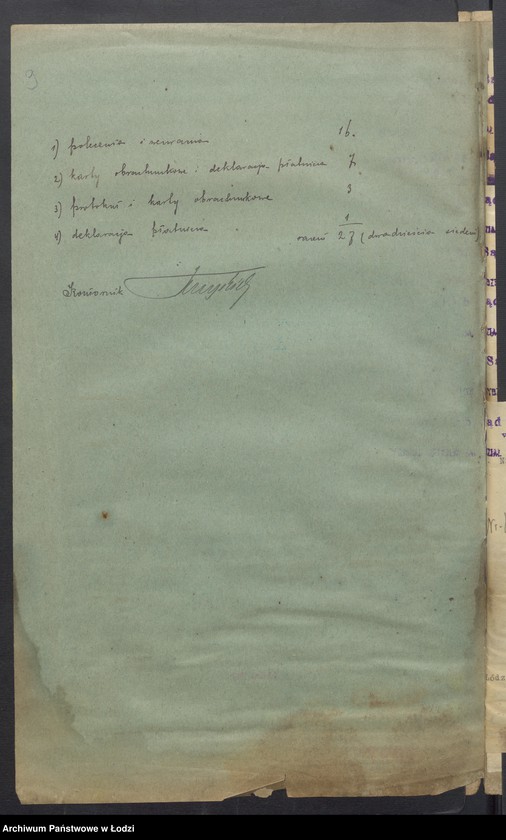 3
1) polecenia i wezwania 16.
2) karty obrachunkowe i deklaracja płatnicza 7.
3) protokuł i karty obrachunkowe 3
4) deklaracja płatnicza 1
razem 27 (dwadzieścia siedem)
Archiwum Państwowe w Łodzi